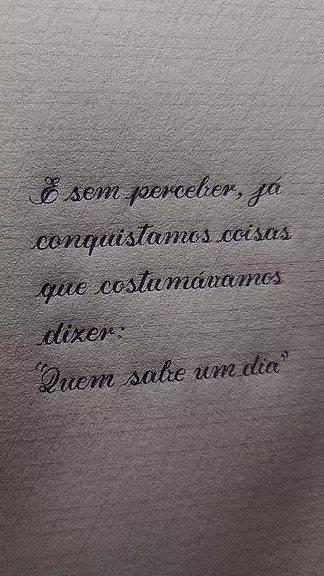 E sem perceber, já
conquistamos coisas
que costumávamos
dizer:
"Quem sabe um dia"